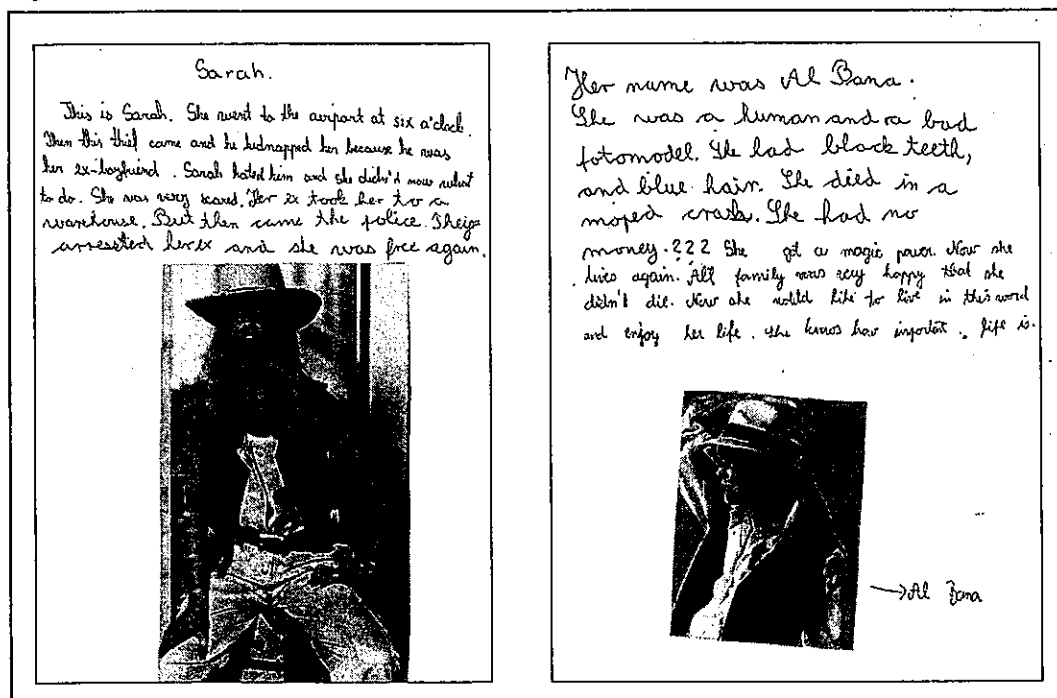 Sarah.
This is Sarah. She went to the airport at six o'clock.
Then this thief came and he kidnapped her because he was
her ex-boyfriend. Sarah hated him and she didn't now what
to do. She was very scared. Her ex took her to a
warehouse. But then came the police. They
arrested her ex and she was free again.
Her name was Al Bana.
She was a human and a bad
fotomodel. She had black teeth,
and blue hair. She died in a
moped crash. She had no
money.??? She got a magic power. Now she
lives again. All family was very happy that she
didn't die. Now she like to live in this word
and enjoy her life. She knows how important life is.
Al Bana